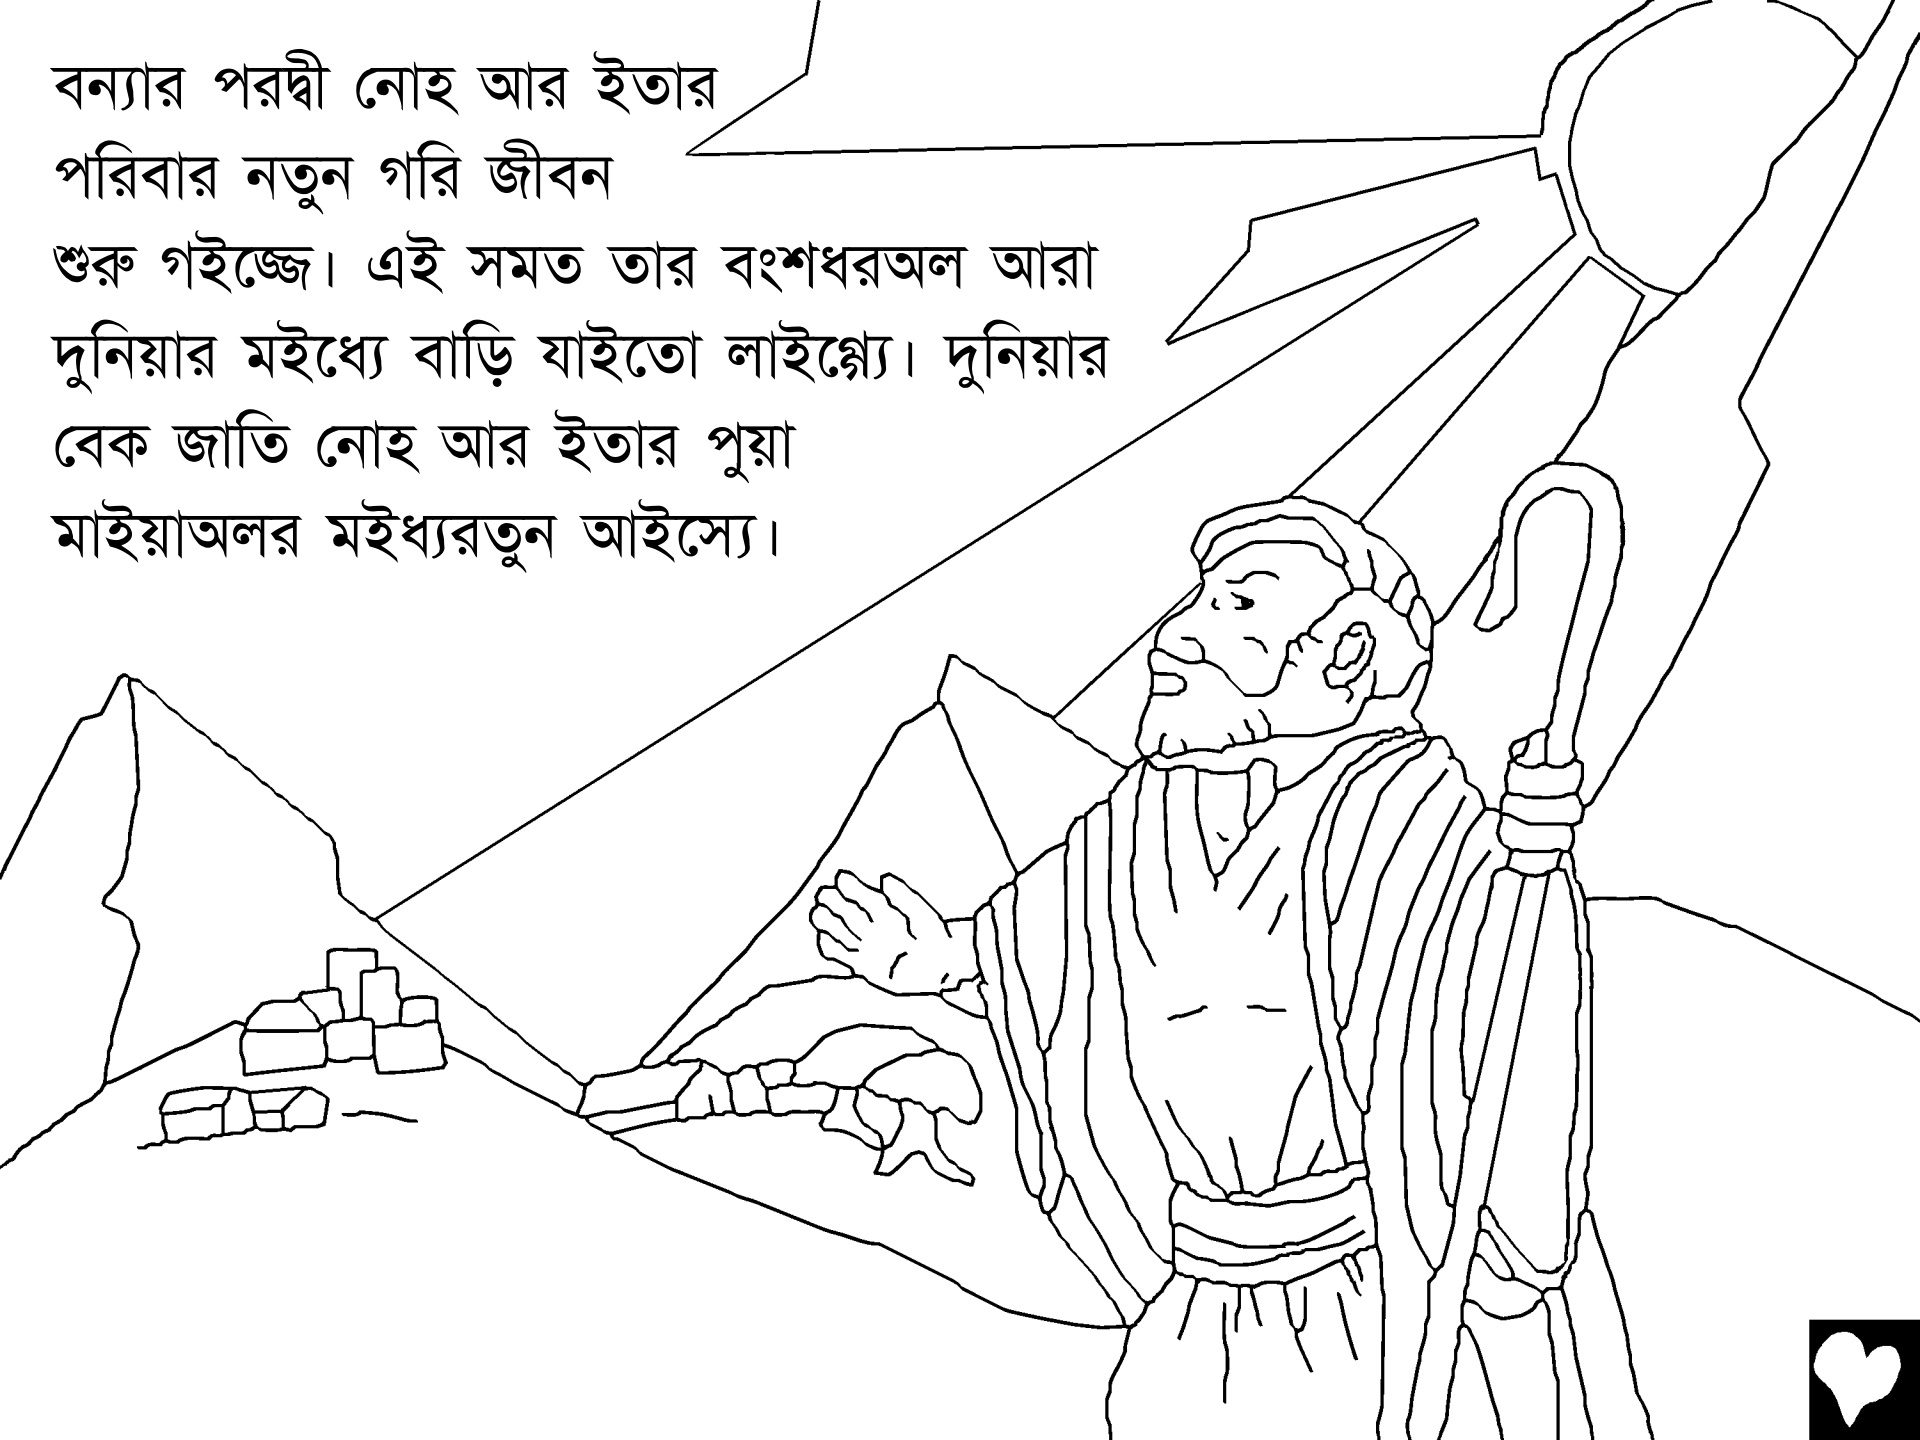 বন্যার পরদ্বী নোহ আর ইতার
পরিবার নতুন গরি জীবন
শুরু গইজ্জে। এই সমত তার বংশধরঅল আরা
দুনিয়ার মইধ্যে বাড়ি যাইতো লাইগ্গ্যে। দুনিয়ার
বেক জাতি নোহ আর ইতার পুয়া
মাইয়াঅলর মইধ্যরতুন আইস্যে।